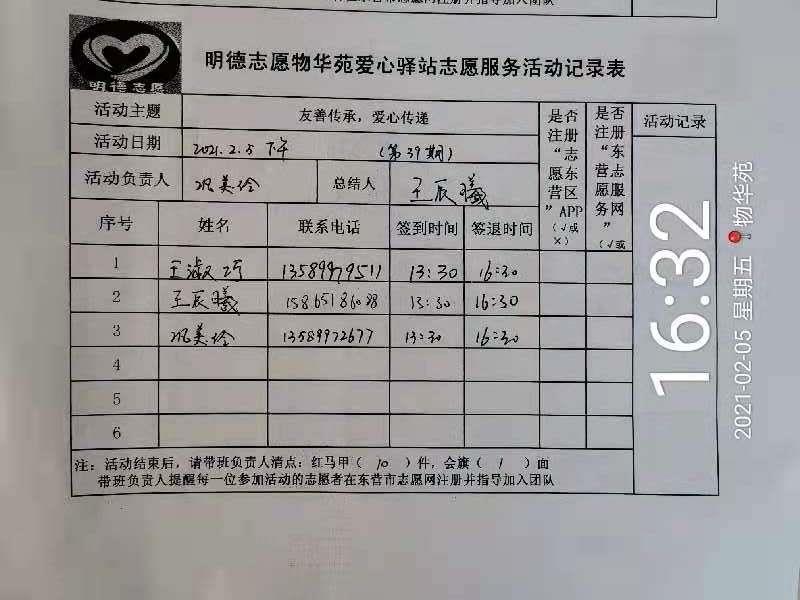 明德志愿
明德志愿物华苑爱心驿站志愿服务活动记录表
活动主题 友善传承，爱心传递 是否注册“志愿东营区”APP（√或×） 是否注册“东营志愿服务网”（√或 活动记录
活动日期 2021.2.5 下午 （第39期）
活动负责人 巩美玲 总结人 王辰曦
序号 姓名 联系电话 签到时间 签退时间
1 王淑巧 13589979511 13:30 16:30
2 王辰曦 15865186088 13:30 16:30
3 巩美玲 13589972677 13:30 16:30
4
5
6
注：活动结束后，请带班负责人清点：红马甲（ 10 ）件，会旗（ 1 ）面
带班负责人提醒每一位参加活动的志愿者在东营市志愿网注册并指导加入团队
16:32
2021-02-05 星期五 物华苑